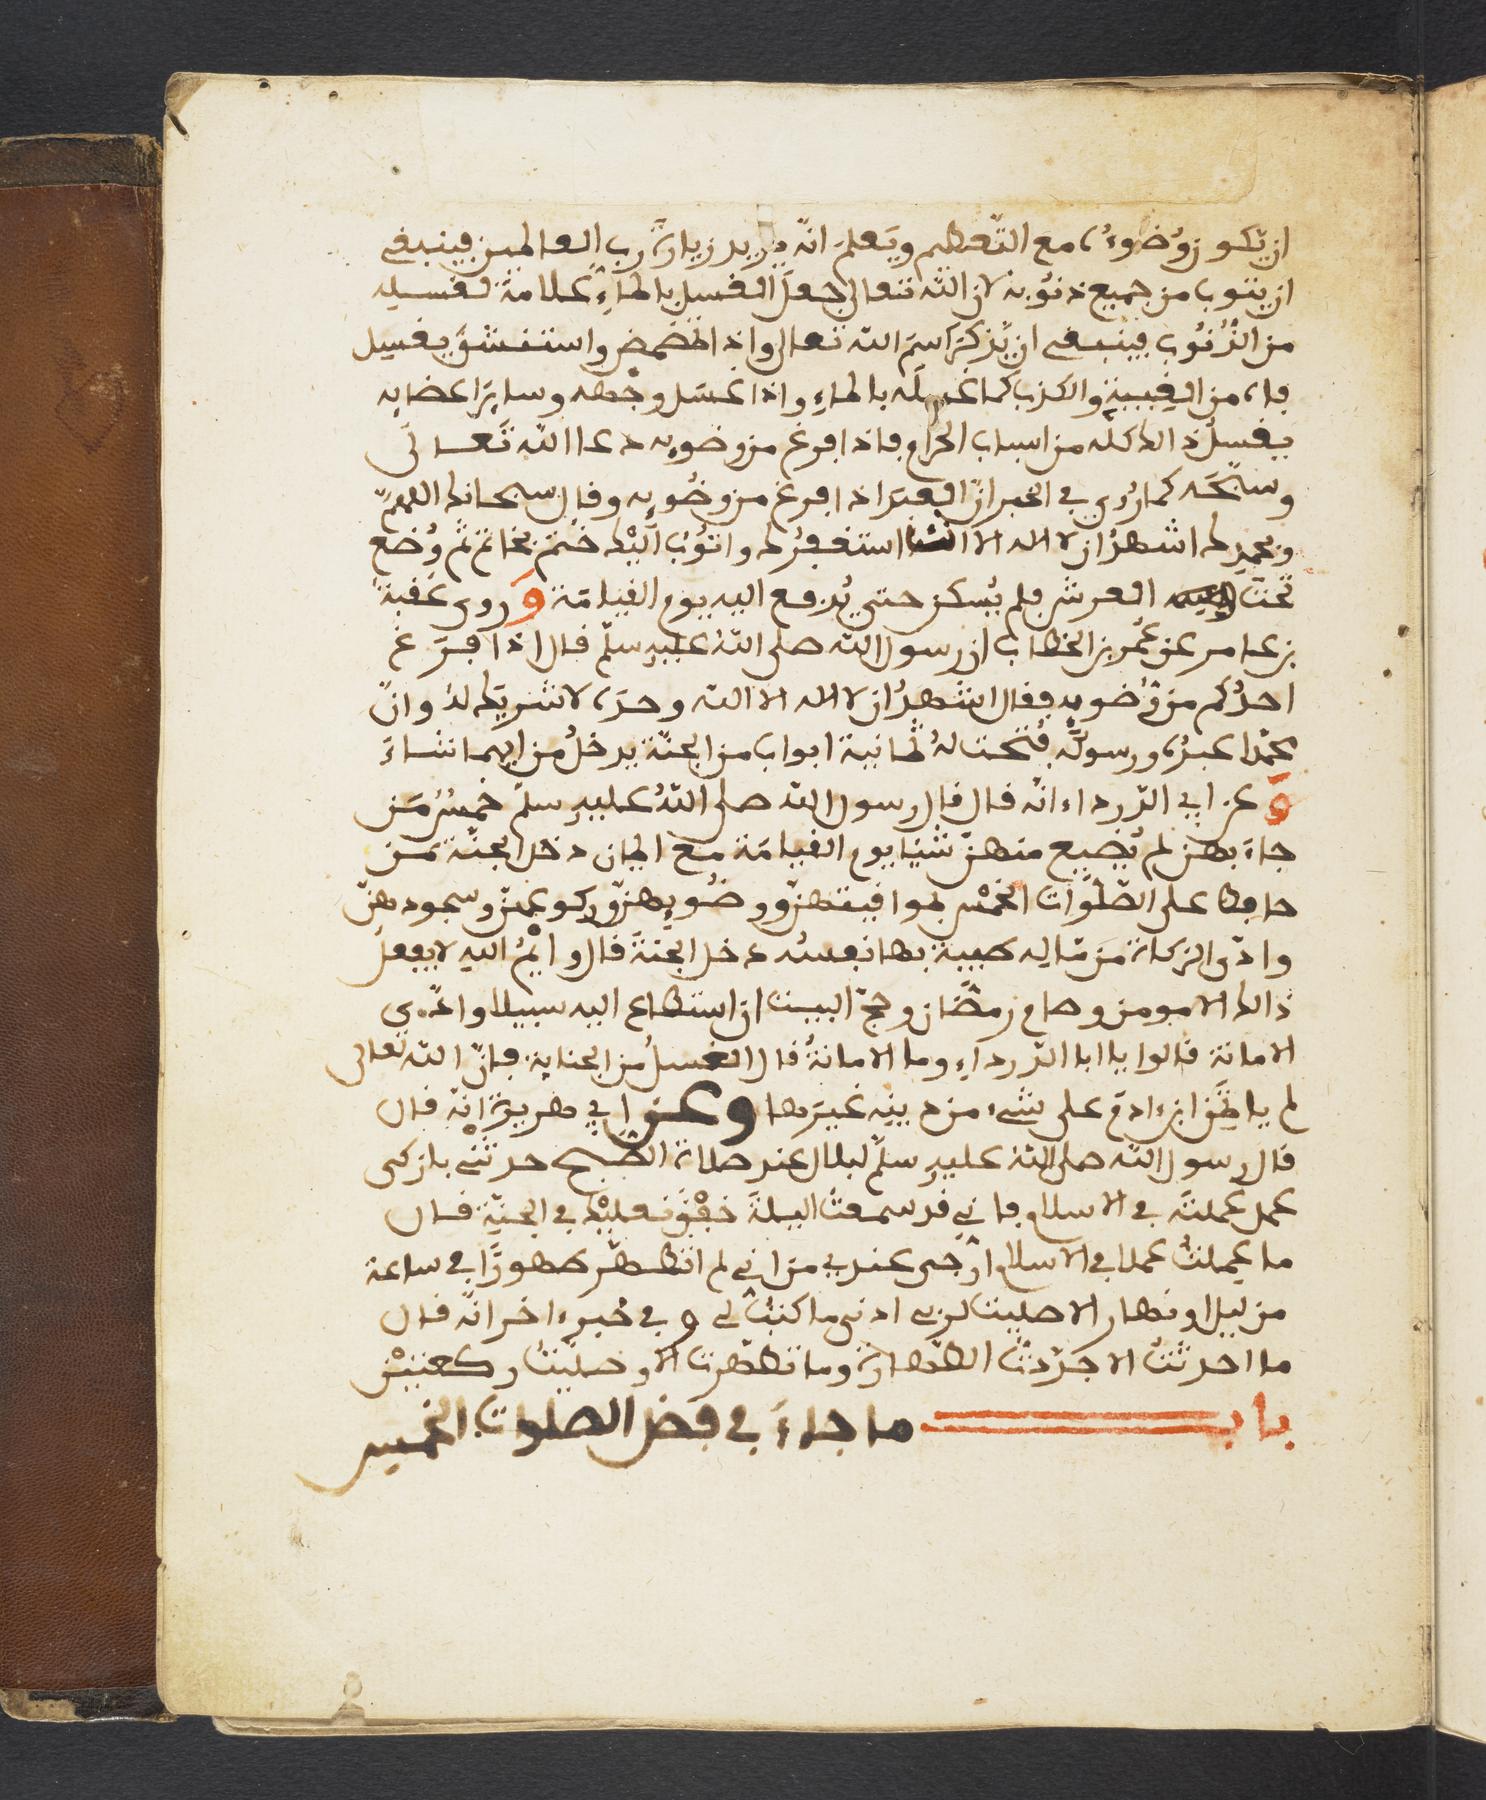 ان يكون وضوءه مع التعظيم ويعلم انه يريد زيارة رب العالمين فينبغي
ان يتوب من جميع ذنوبه لان الله تعالى جعل الغسل بالماء علامة لغسله
من الذنوب فينبغي ان يذكر اسم الله تعالى واذا تمضمض واستنشق يغسل
فاه من الغيبة والكذب كما غسله بالماء واذا غسل وجهه وسائر اعضايه
يغسل ذالك كله من اسباب الحرام فاذا افرغ من وضويه دعا الله تعالى
وسبحه كما روي في الخبر ان العبد اذا فرغ من وضويه وقال سبحانك اللهم
وبحمدك اشهد ان لا اله الا انت استغفرك واتوب اليك ختم بخاتم ثم وضع
تحت العرش فلم يكسر حتى يدفع اليه يوم القيامة وروى عقبة
بن عامر عن عمر بن الخطاب ان رسول الله صلى الله عليه سلم قال اذا فرغ
احدكم من وضويه فقال اشهد ان لا اله الا الله وحده لا شريك له وان
محمدا عبده ورسوله فتحت له ثمانية ابواب من الجنة يدخل من ايهما شاء
وعن ابي الدرداء انه قال قال رسول الله صلى الله عليه سلم خمس من
جاء بهن لم يضيع منهن شيئا يوم القيامة مع ايمان دخل الجنة من
حافظ على الصلوات الخمس لمواقيتهن ووضويهن وركوعهن وسجودهن
وادى الزكاة من ماله طيبة بها نفسه دخل الجنة قال وايم الله لا يفعل
ذالك الا مومن وصام رمضان وحج البيت ان استطاع اليه سبيلا وادى
الامانة قالوا يا ابا الدرداء وما الامانة قال الغسل من الجنابة فان الله تعالى
لم يامن ابن ادم على شيء من دينه غيرها وعن ابي هريرة انه قال
قال رسول الله صلى الله عليه سلم لبلال عند صلاة الصبح حدثني بازكى
عمل عملته في الاسلام فاني قد سمعت اليلة خفق نعليك في الجنة قال
ما عملت عملا في الاسلام ارجى عندي من اني لم اتطهر طهورا في ساعة
من ليل او نهار الا صليت لربي ادنى ما كتب لي وفي خبر اخر انه قال
ما احدثت الا جددت الطهارة وما تطهرت الا وصليت ركعتين
باب ما جاء في فضل الصلوات الخمس